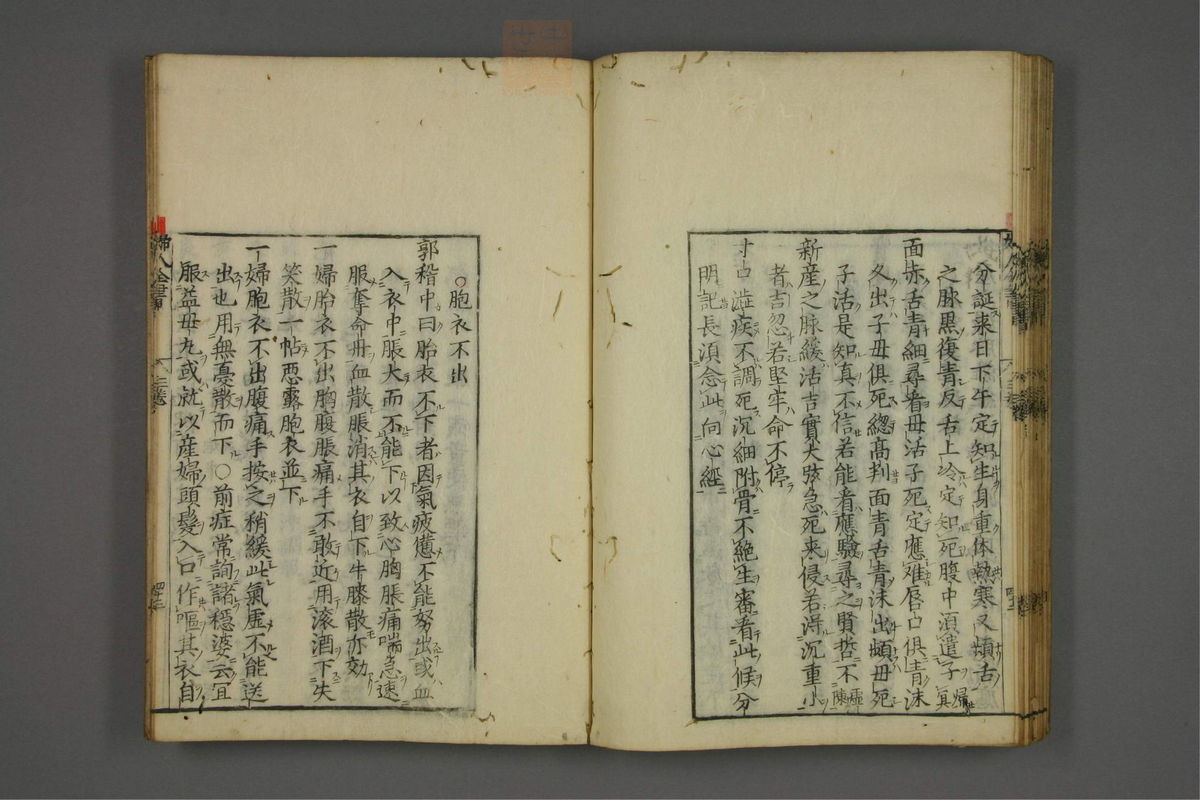 分誕来日下午定知生身重体熱寒又頻舌
之脉黒復青反舌上冷定知死腹中須遣子
面赤舌青細尋看母活子死定應难唇口俱青沫
久出子母俱死緫髙判面青舌青沫出頻母死
子活是知真不信若能看應驗尋之賢哲不
新産之脉緩活吉實大弦急死来侵若淂沉重小
者吉忽若堅牢命不停
寸口澁疾不調死沉細附骨不絶生審看此候分
明記長湏念此向心經
○胞衣不出
郭稽中曰胎衣不下者因氣疲憊不能努出或血
入衣中脹大而不能下以致心胸脹痛喘急速
服奪命丹血散脹消其衣自下牛膝散亦効
一婦胎衣不出胸腹脹痛手不敢近用滚酒下失
笑散一帖惡露胞衣並下
一婦胞衣不出腹痛手按之稍緩此氣虛不能送
出也用無憂散而下○前症常詢諸穩婆云宜
服益母丸或就以産婦頭髮入口作嘔其衣自